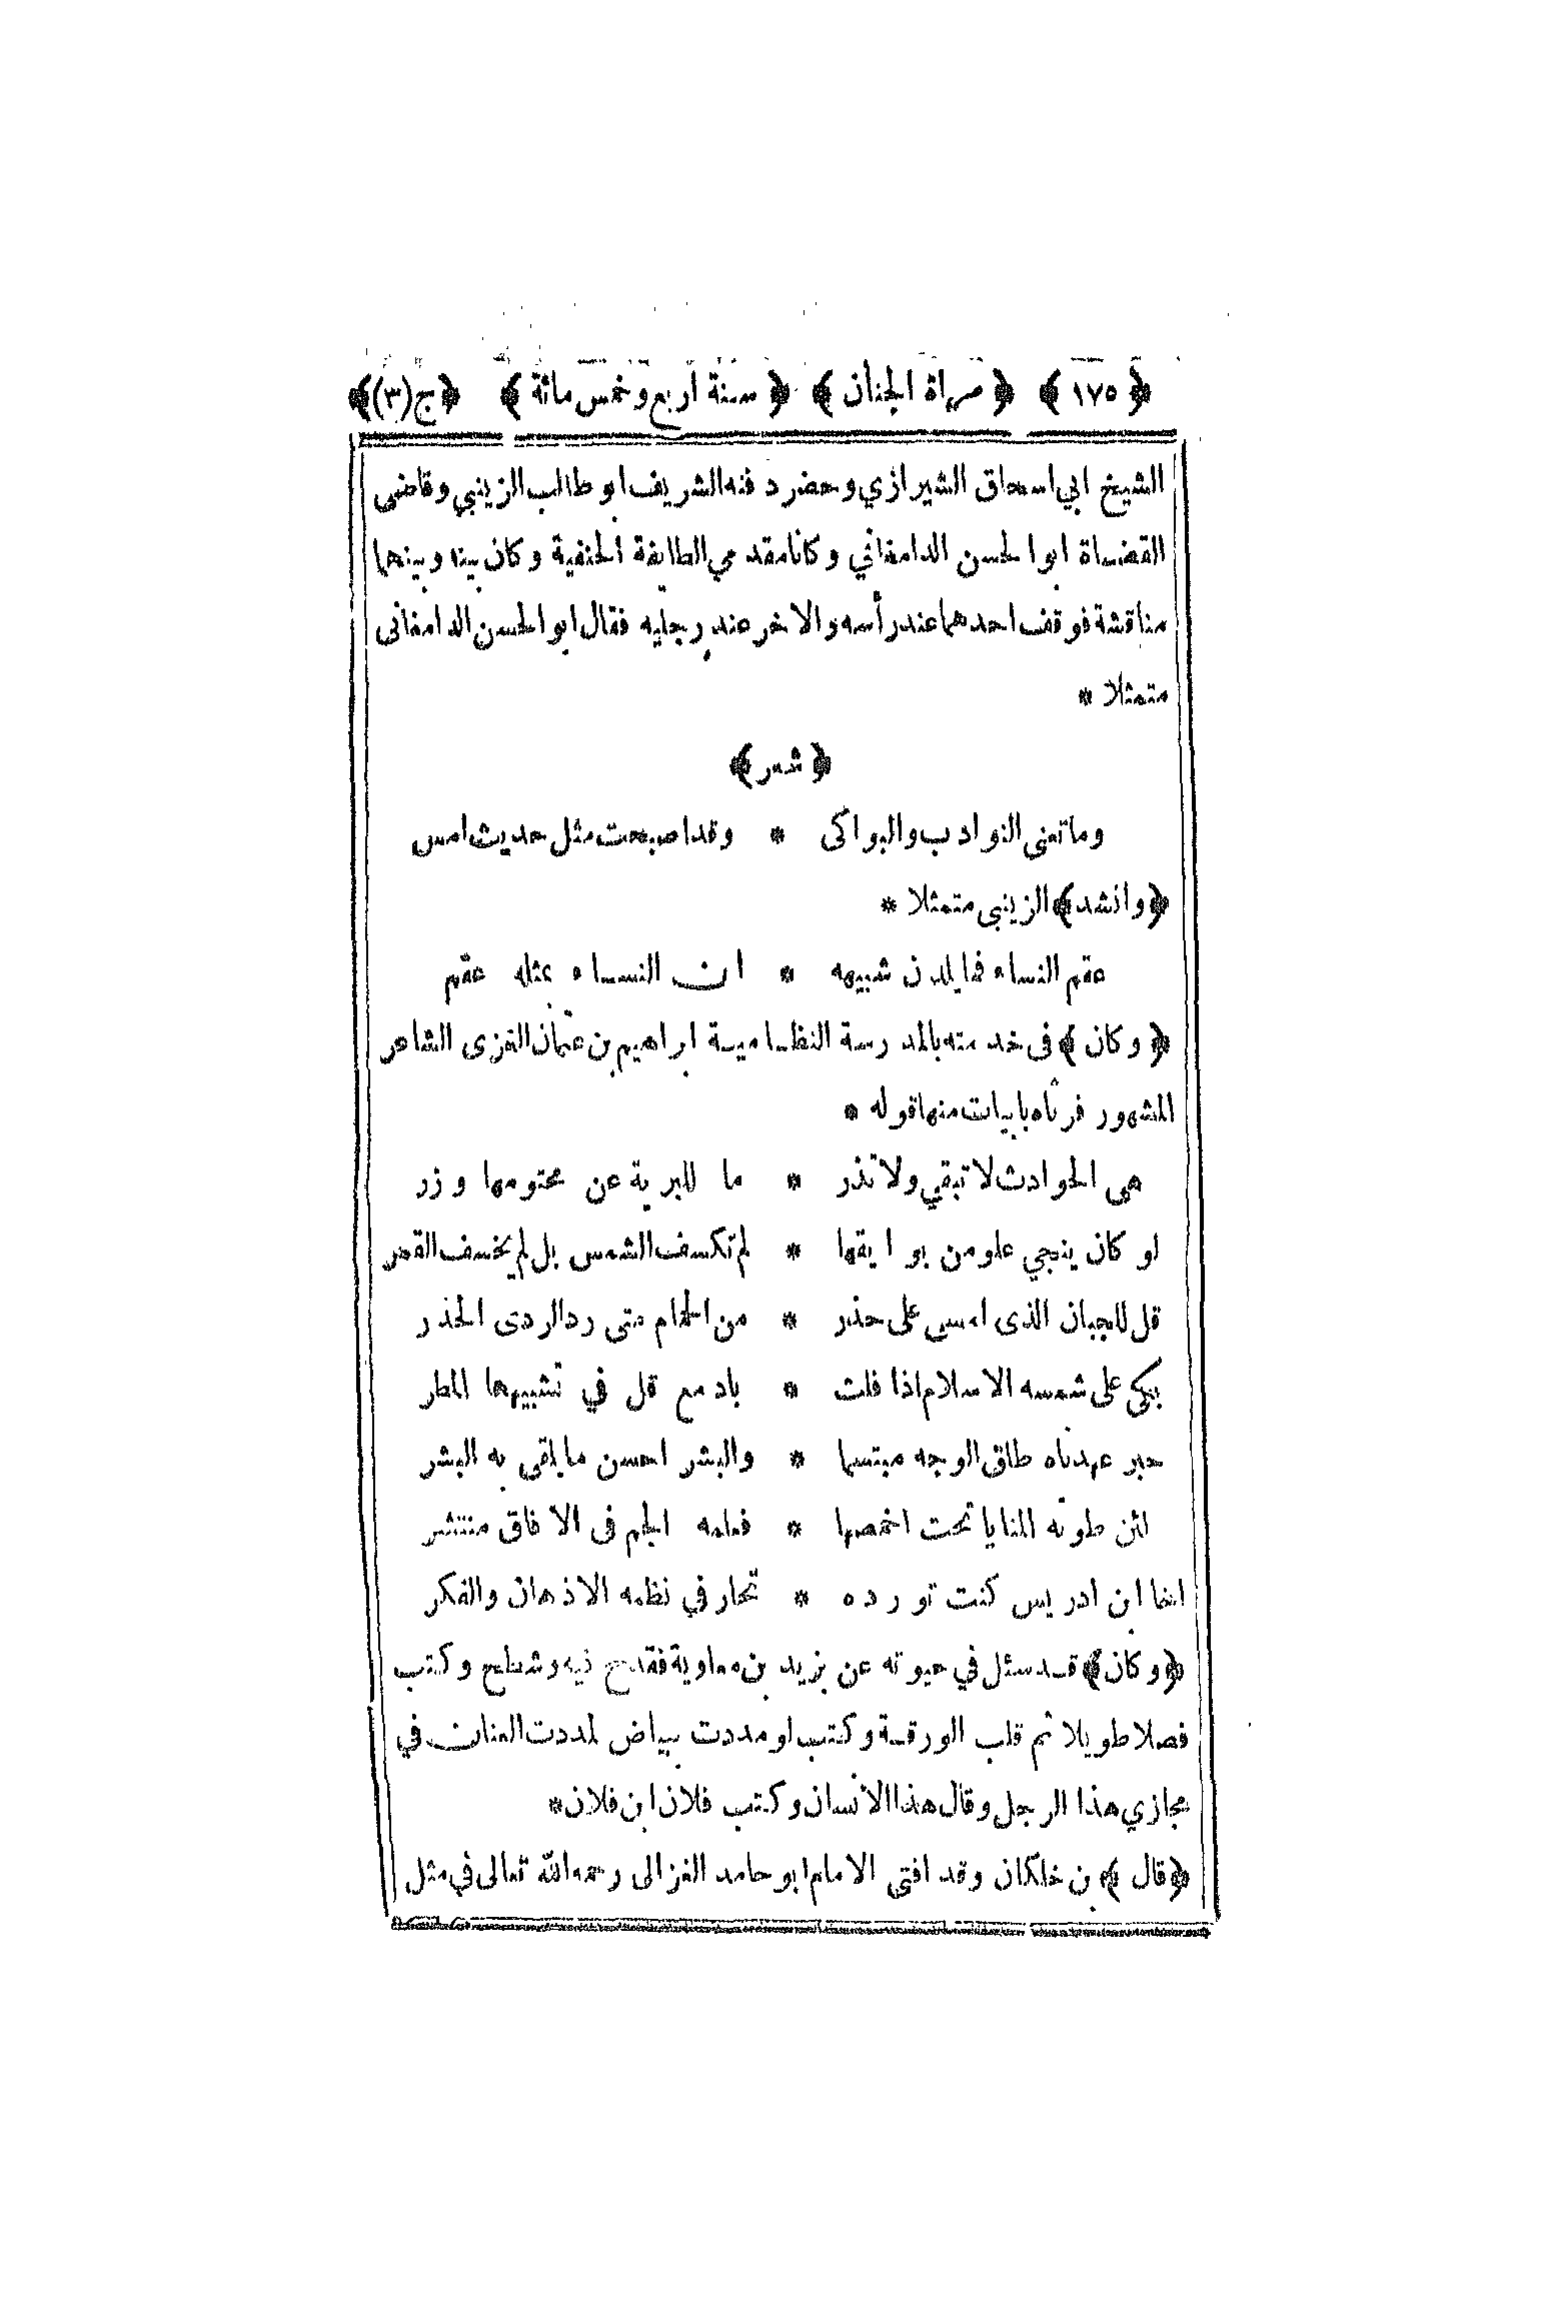 ﴿١٧٥﴾ ﴿مرآة الجنان﴾ ﴿سنة اربع وخمس مائة﴾ ﴿ج(٣)﴾
الشيخ ابي اسحاق الشيرازي وحضر دفنه الشريف ابو طالب الزينبي وقاضى
القضاة ابو الحسن الدامغاني وكانا مقدمي الطايفة الحنفية وكان بينه وبينهما
مناقشة فوقف احدهما عند رأسه والاخر عند رجليه فقال ابو الحسن الدامغانى
متمثلا *
﴿شعر﴾
وما تغنى النوادب والبواكى * وقد اصبحت مثل حديث امس
﴿وانشد﴾ الزينبى متمثلا *
عقم النساء فما يلدن شبيهه * ان النساء بمثله عقم
﴿وكان﴾ فى خدمته بالمدرسة النظامية ابراهيم بن عثمان الغزى الشاعر
المشهور فرثاه بابيات منها قوله *
هى الحوادث لا تبقي ولا تذر * ما للبرية عن محتومها وزر
لو كان ينجي علو من بوايقها * لم تكسف الشمس بل لم يخسف القمر
قل للجبان الذى امسى على حذر * من الحمام متى رد الردى الحذر
بكى على شمسه الاسلام اذا فلت * بادمع قل في تشبيهها المطر
حبر عهدناه طلق الوجه مبتسما * والبشر احسن ما يلقى به البشر
لئن طوته المنايا تحت اخمصها * فعلمه الجم فى الافاق منتشر
ابن ادريس كنت تورده * تحار في نظمه الاذهان والفكر
﴿وكان﴾ قد سئل في حيوته عن يزيد بن معاوية فقدح فيه وشطح وكتب
فصلا طويلا ثم قلب الورقة وكتب لو مددت ببياض لمددت العنان في
مجازي هذا الرجل وقال هذا الانسان وكتب فلان ابن فلان*
﴿قال﴾ بن خلكان وقد افتى الامام ابو حامد الغزالى رحمه الله تعالى في مثل